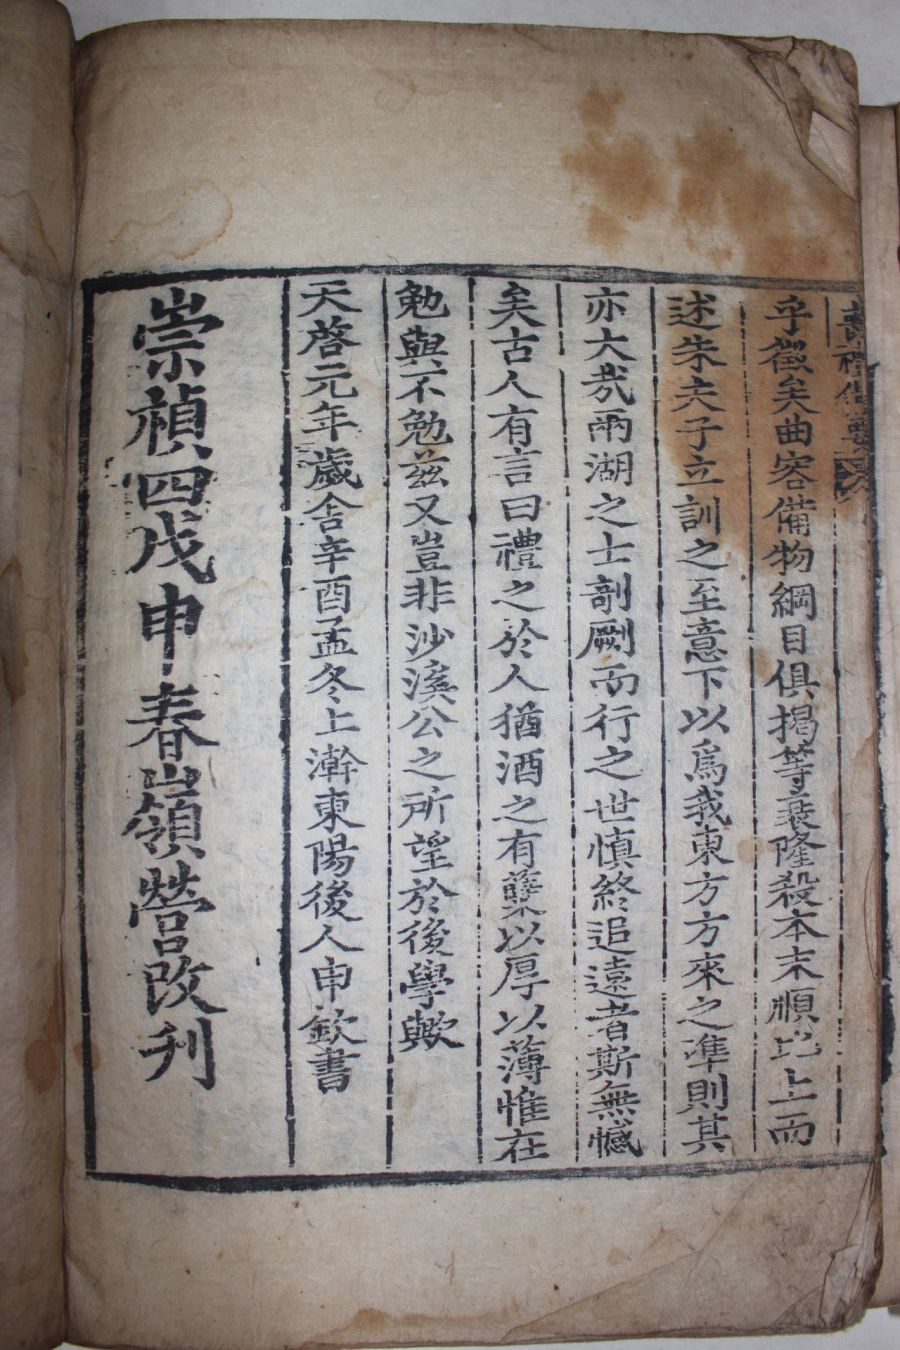 喪禮備要
乎徵矣曲容備物綱目俱揭等衰隆殺本末順比上而
述朱夫子立訓之至意下以爲我東方方來之準則其
亦大哉兩湖之士剞劂而行之世愼終追遠者斯無憾
矣古人有言曰禮之於人猶酒之有蘖以厚以薄惟在
勉與不勉茲又豈非沙溪公之所望於後學歟
天啓元年歲舍辛酉孟冬上澣東陽後人申欽書
崇禎四戊申春嶺營改刊